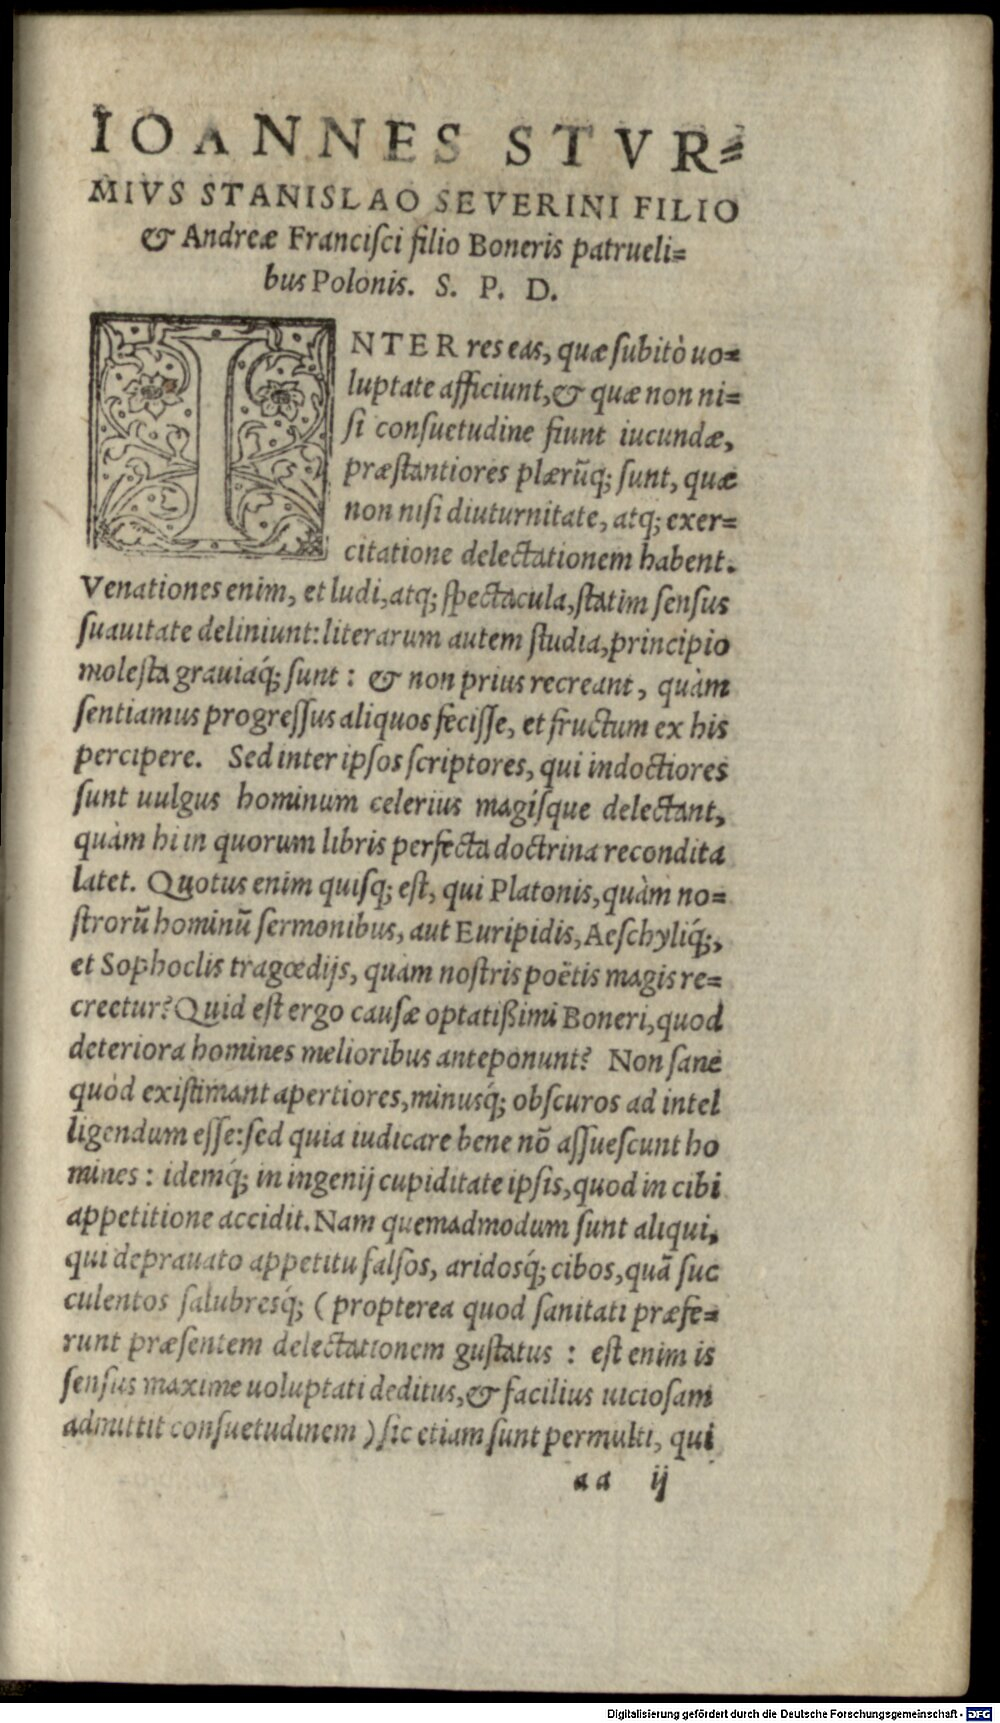 IOANNES STVR=
MIVS STANISLAO SEVERINI FILIO
& Andreæ Franciſci filio Boneris patrueli=
bus Polonis. S. P. D.
INTER res eas, quæ ſubitò uo=
luptate afficiunt, & quæ non ni=
ſi conſuetudine fiunt iucundæ,
præſtantiores plærũq; ſunt, quæ
non niſi diuturnitate, atq; exer=
citatione delectationem habent.
Venationes enim, et ludi, atq; ſpectacula, ſtatim ſenſus
ſuauitate deliniunt: literarum autem ſtudia, principio
moleſta grauiaq́; ſunt : & non prius recreant, quàm
ſentiamus progreſſus aliquos feciſſe, et fructum ex his
percipere. Sed inter ipſos ſcriptores, qui indoctiores
ſunt uulgus hominum celerius magíſque delectant,
quàm hi in quorum libris perfecta doctrina recondita
latet. Quotus enim quiſq; eſt, qui Platonis, quàm no=
ſtrorũ hominũ ſermonibus, aut Euripidis, Aeſchyliq́;,
et Sophoclis tragœdijs, quàm noſtris poëtis magis re=
creetur? Quid eſt ergo cauſæ optatißimi Boneri, quod
deteriora homines melioribus anteponunt? Non ſane
quòd exiſtimant apertiores, minusq́; obſcuros ad intel
ligendum eſſe: ſed quia iudicare bene nõ aſſueſcunt ho
mines : idemq́; in ingenij cupiditate ipſis, quod in cibi
appetitione accidit. Nam quemadmodum ſunt aliqui,
qui deprauato appetitu ſalſos, aridosq́; cibos, quã ſuc
culentos ſalubresq́; ( propterea quod ſanitati præfe=
runt præſentem delectationem guſtatus : eſt enim is
ſenſus maxime uoluptati deditus, & facilius uicioſam
admittit conſuetudinem ) ſic etiam ſunt permulti, qui
aa ij
Digitalisierung gefördert durch die Deutsche Forschungsgemeinschaft - DFG